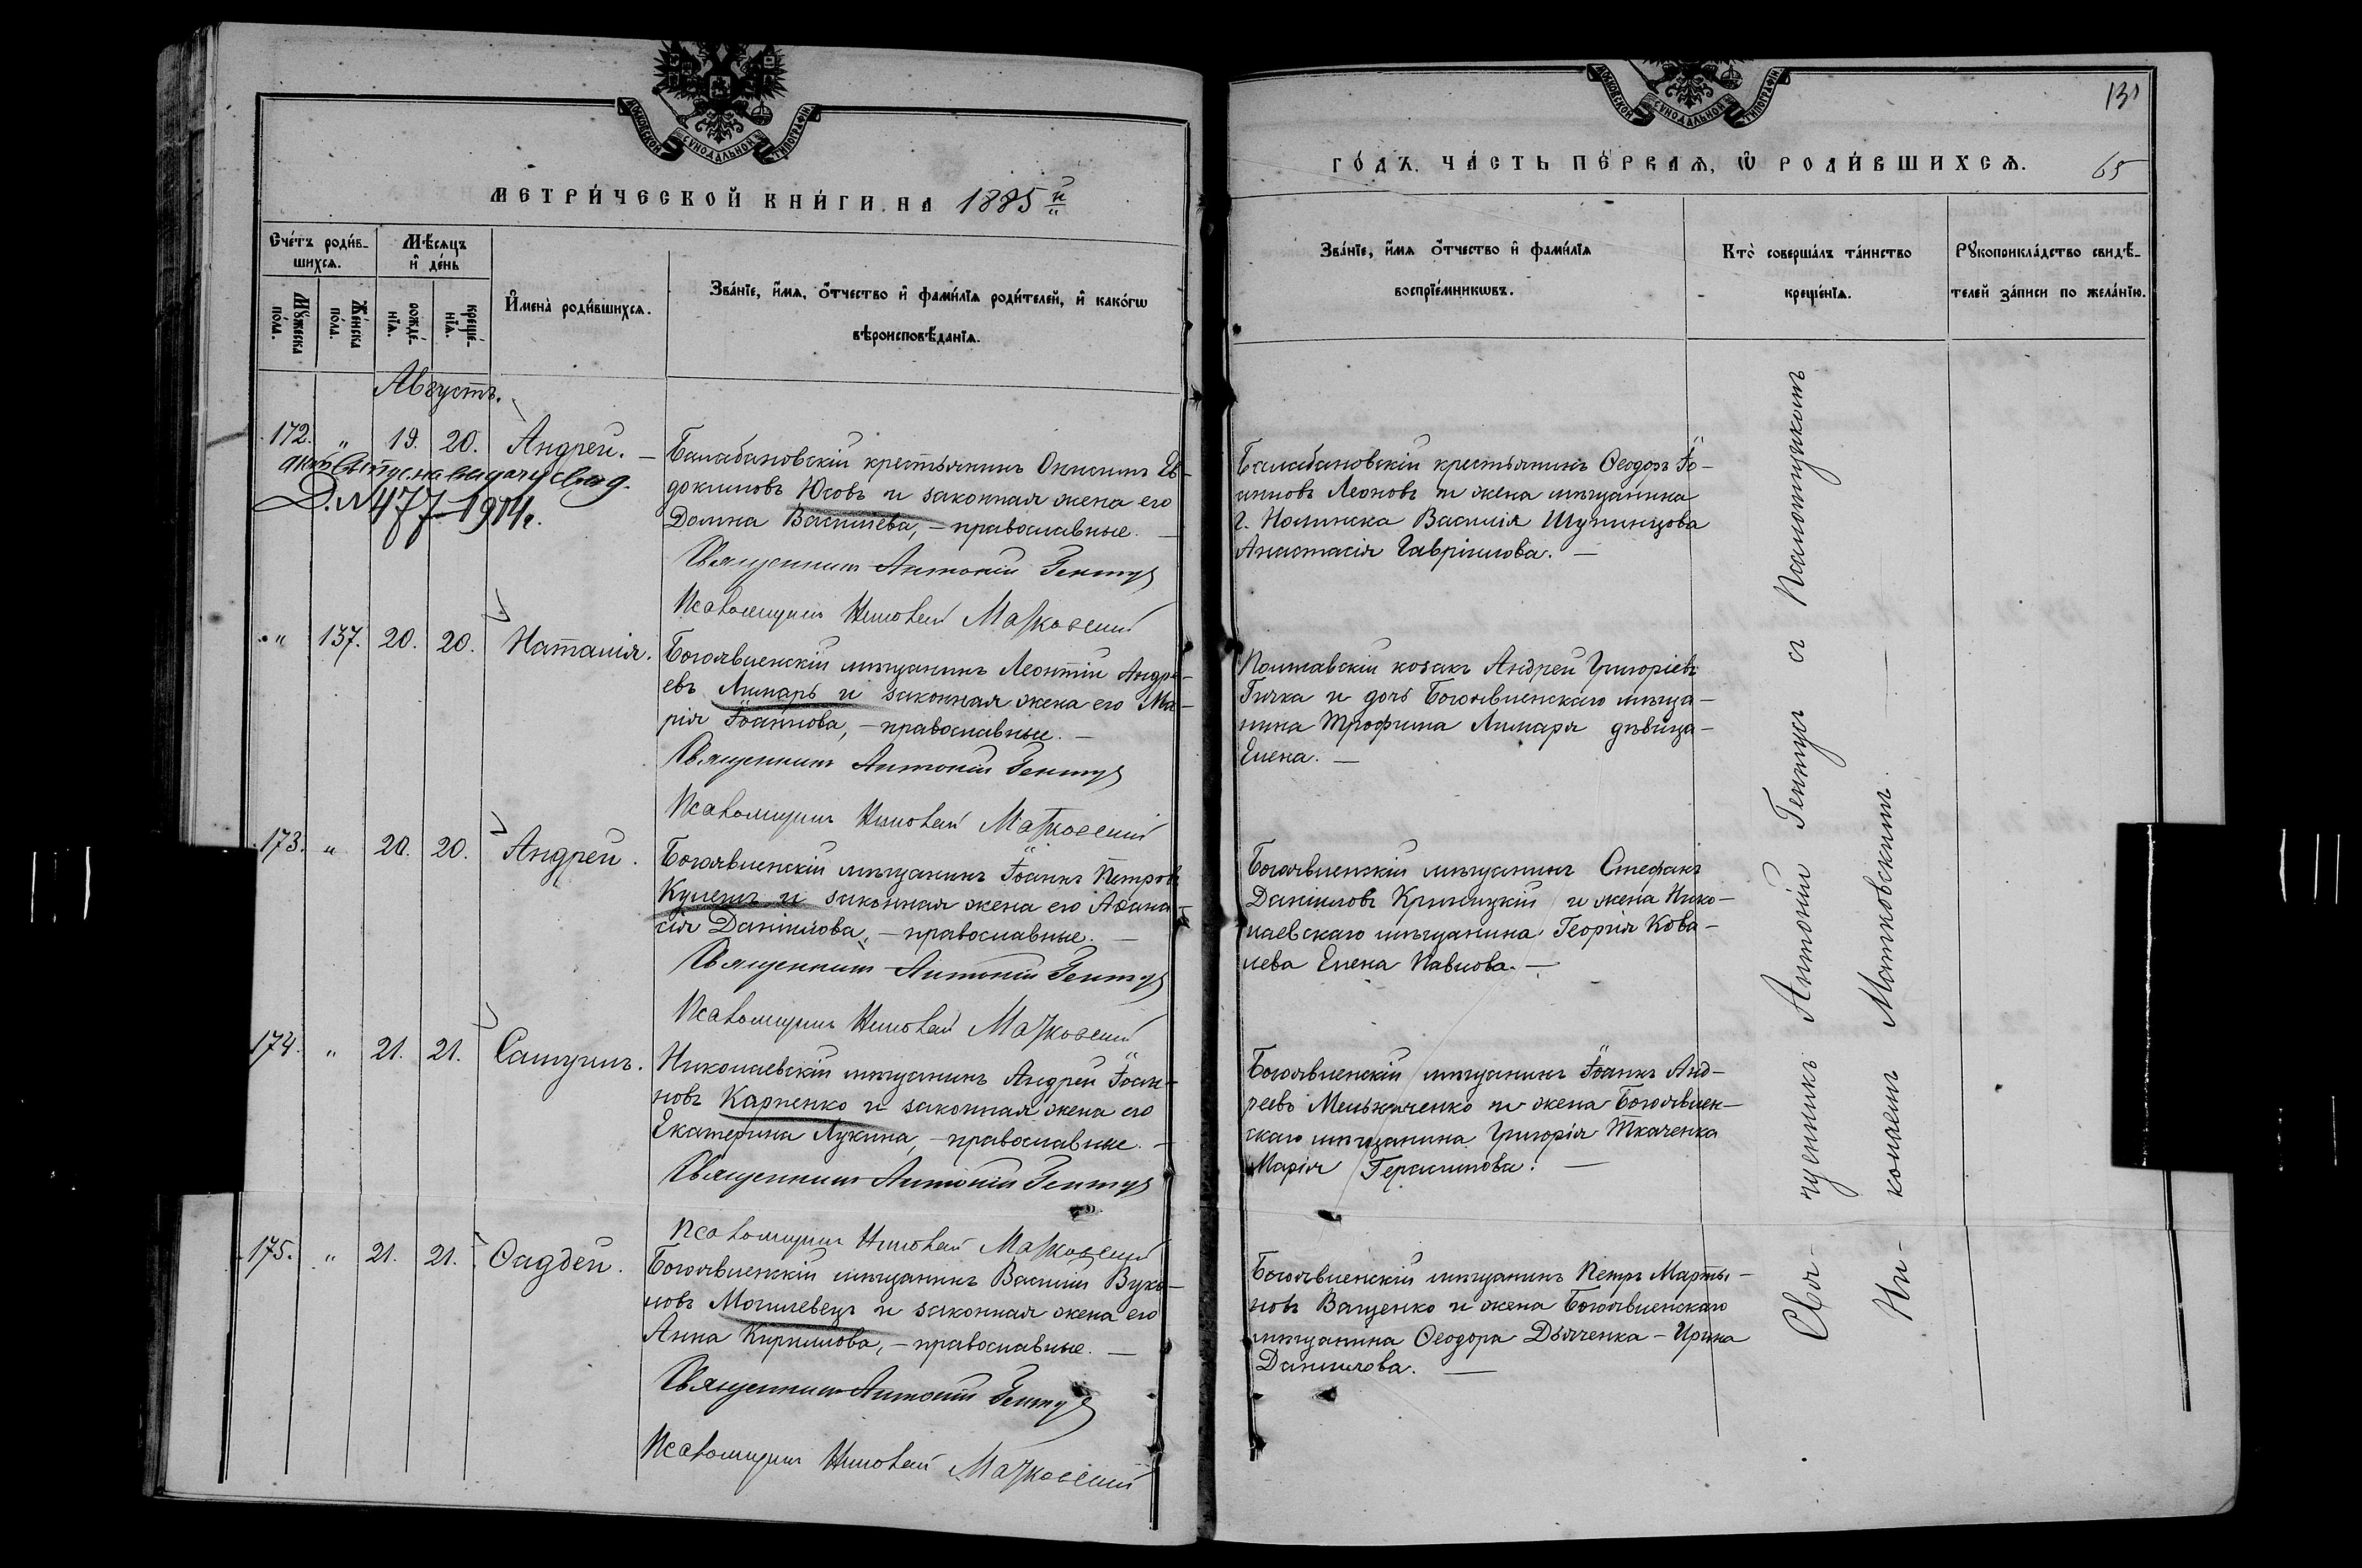 МОСКОВСКОЙ СѴНОДАЛЬНОЙ ТИПОГРАФІИ
МЕТРИ́ЧЕСКОЙ КНИ́ГИ НА 1885 й
Сче́тъ роди́в-
шихсѧ.
Мѣ́сѧцъ
и҆ де́нь
Мꙋ́жеска
по́ла.
Же́нска
по́ла.
рожде́-
нїѧ.
креще́-
нїѧ.
И҆мена̀ роди́вшихсѧ.
Зва́нїе, и҆́мѧ, ѻ҆́тчество и҆ фами́лїѧ роди́телей, и҆ како́гѡ
вѣроисповѣ́данїѧ.
Августъ.
172. " 19. 20. Андрей. —
Д. № 477 – 1914 г.
Балабановскій крестьянинъ Онисимъ Ев-
докимовъ Юсовъ и законная жена его
Домна Васильева, – православные. —
Священникъ Антоній Гентуз
Псаломщикъ Николай Матковскій
" 137. 20. 20. Наталія.
Богоявленскій мѣщанинъ Леонтій Андре-
евъ Лимарь и законная жена его Ма-
рія Іоаннова, – православные. —
Священникъ Антоній Гентуз
Псаломщикъ Николай Матковскій
173. " 20. 20. Андрей.
Богоявленскій мѣщанинъ Іоаннъ Петровъ
Кулешъ и законная жена его Аѳана-
сія Даніилова, – православные. —
Священникъ Антоній Гентуз
Псаломщикъ Николай Матковскій
174. " 21. 21. Самуилъ.
Николаевскій мѣщанинъ Андрей Іоан-
новъ Карпенко и законная жена его
Екатерина Лукина, – православные. —
Священникъ Антоній Гентуз
Псаломщикъ Николай Матковскій
175. " 21. 21. Ѳаддей.
Богоявленскій мѣщанинъ Василій
новъ Могилевецъ и законная жена его
Анна Кириллова, – православные. —
Священникъ Антоній Гентуз
Псаломщикъ Николай Матковскій
МОСКОВСКОЙ СѴНОДАЛЬНОЙ ТИПОГРАФІИ
131
ГО́ДЪ. ЧА́СТЬ ПЕ́РВАѦ, Ѡ҆ РОДИ́ВШИХСѦ. 65
Зва́нїе, и҆́мѧ ѻ҆́тчество и҆ фами́лїѧ
воспрїе́мникѡвъ.
Кто̀ соверша́лъ та́инство
креще́нїѧ.
Рꙋкоприкла́дство свидѣ́-
телей за́писи по жела́нїю.
Балабановскій крестьянинъ Ѳеодоръ Іо-
анновъ Леоновъ и жена мѣщанина
г. Нолинска Василія Шупинцова
Анастасія Гавріилова. —
Полтавскій козакъ Андрей Григоріевъ
Гичка и дочь Богоявленскаго мѣща-
нина Трофима Лимаря дѣвица –
Елена. —
Богоявленскій мѣщанинъ Стефанъ
Даніиловъ Криницкій и жена Нико-
лаевскаго мѣщанина Георгія Кова-
лева Елена Павлова. —
Богоявленскій мѣщанинъ Іоаннъ Анд-
реевъ Мельниченко и жена Богоявлен-
скаго мѣщанина Григорія Ткаченка
Марія Герасимова. —
Богоявленскій мѣщанинъ Петръ Марты-
новъ Ващенко и жена Богоявленскаго
мѣщанина Ѳеодора Дьяченка – Ирина
Даниилова. —
Свя- щенникъ Антоній Гентузъ съ Псаломщикомъ
Ни- колаемъ Матковскимъ. —